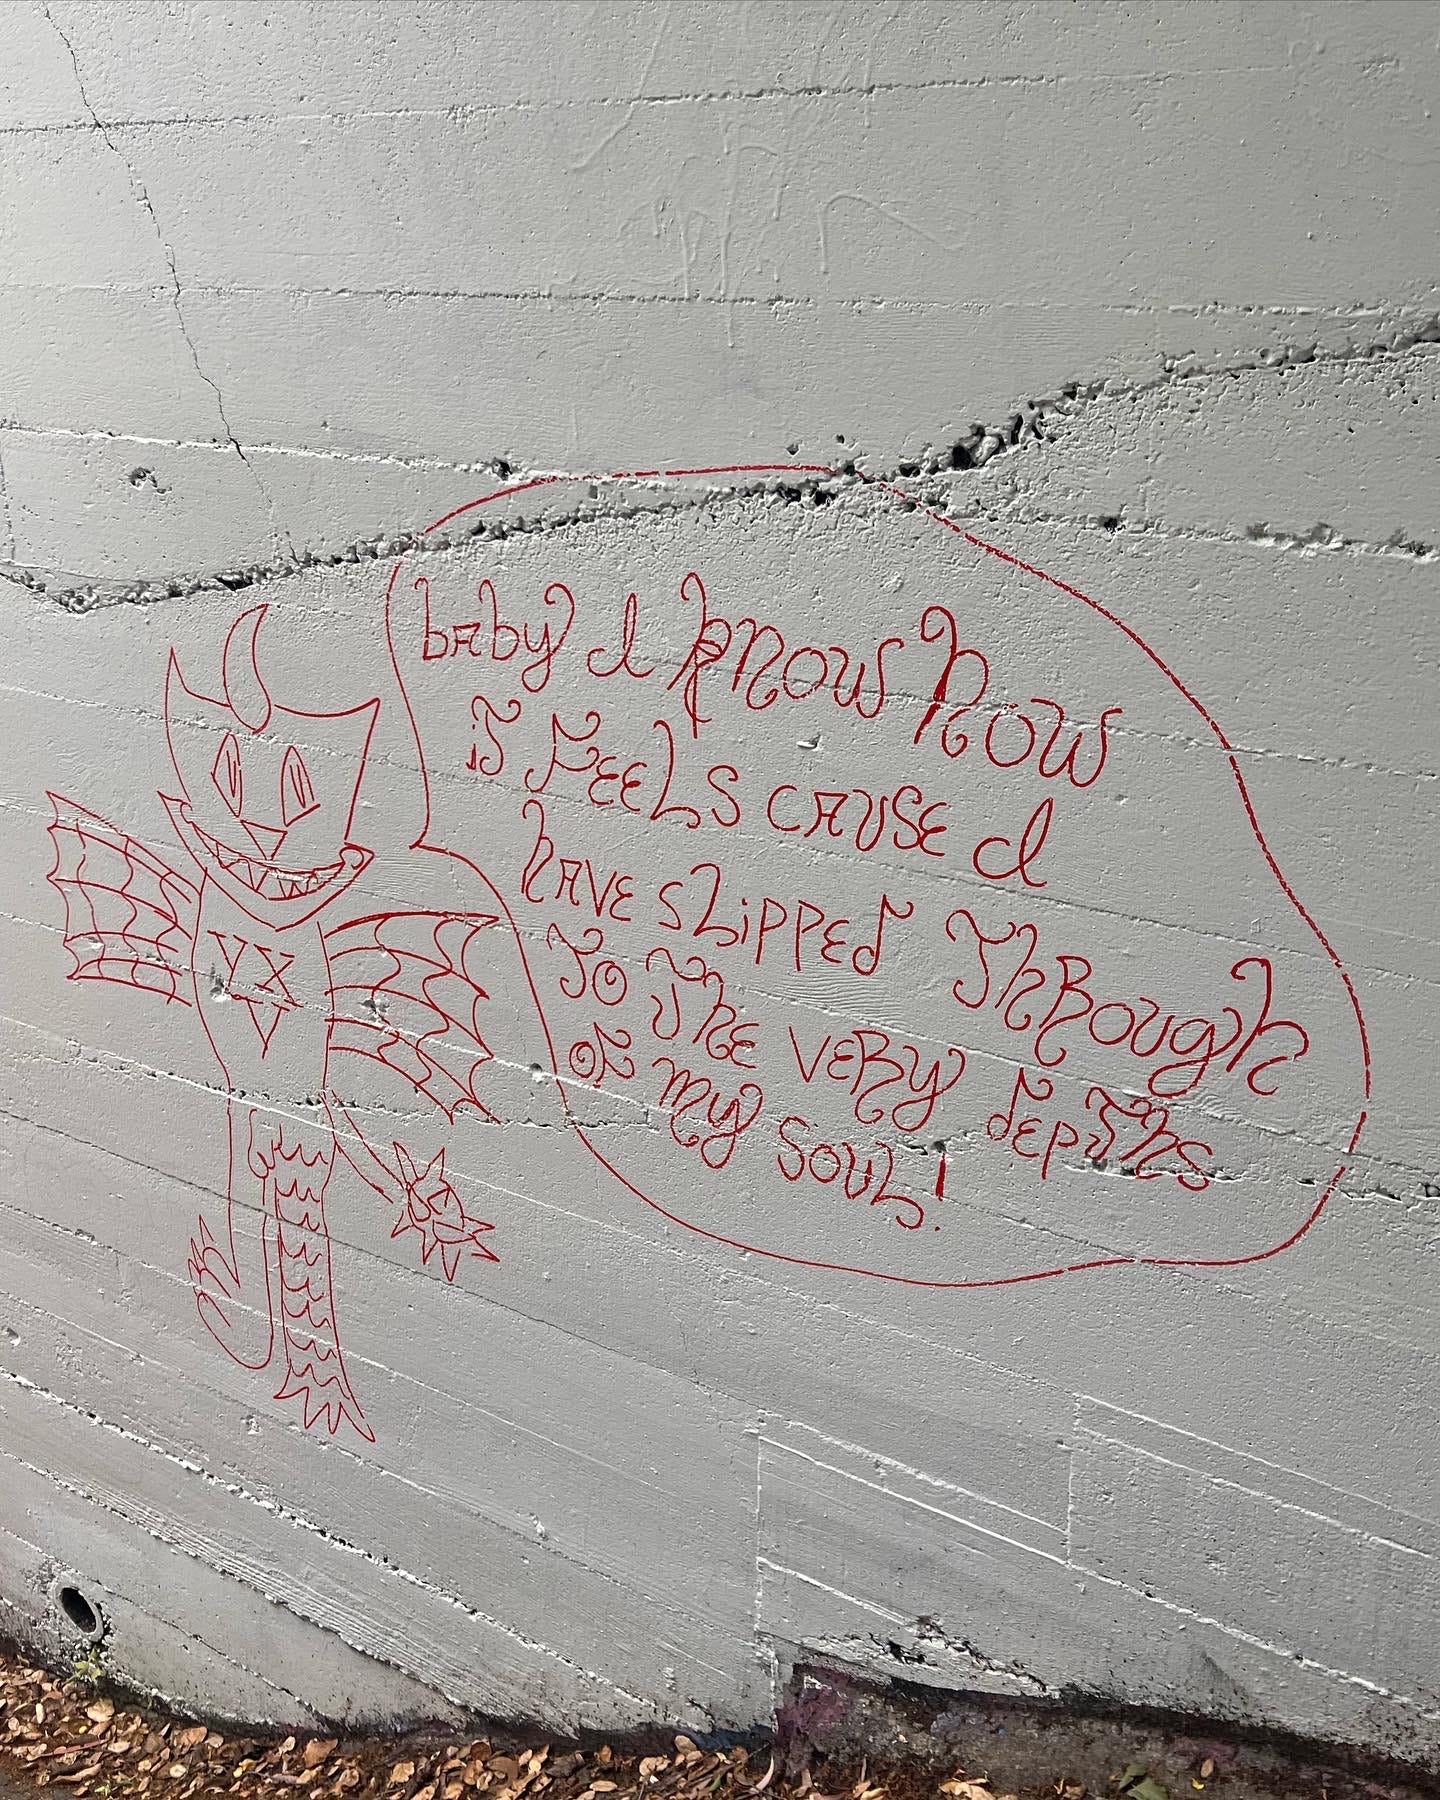 baby I know how
it feels cause I
have slipped through
to the very depths
of my soul!